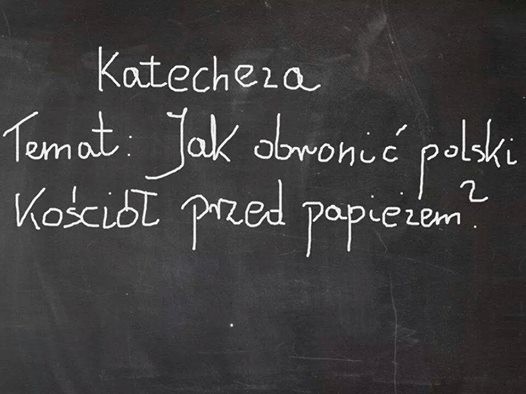 Katecheza
Temat: Jak obronić polski
Kościół przed papieżem?